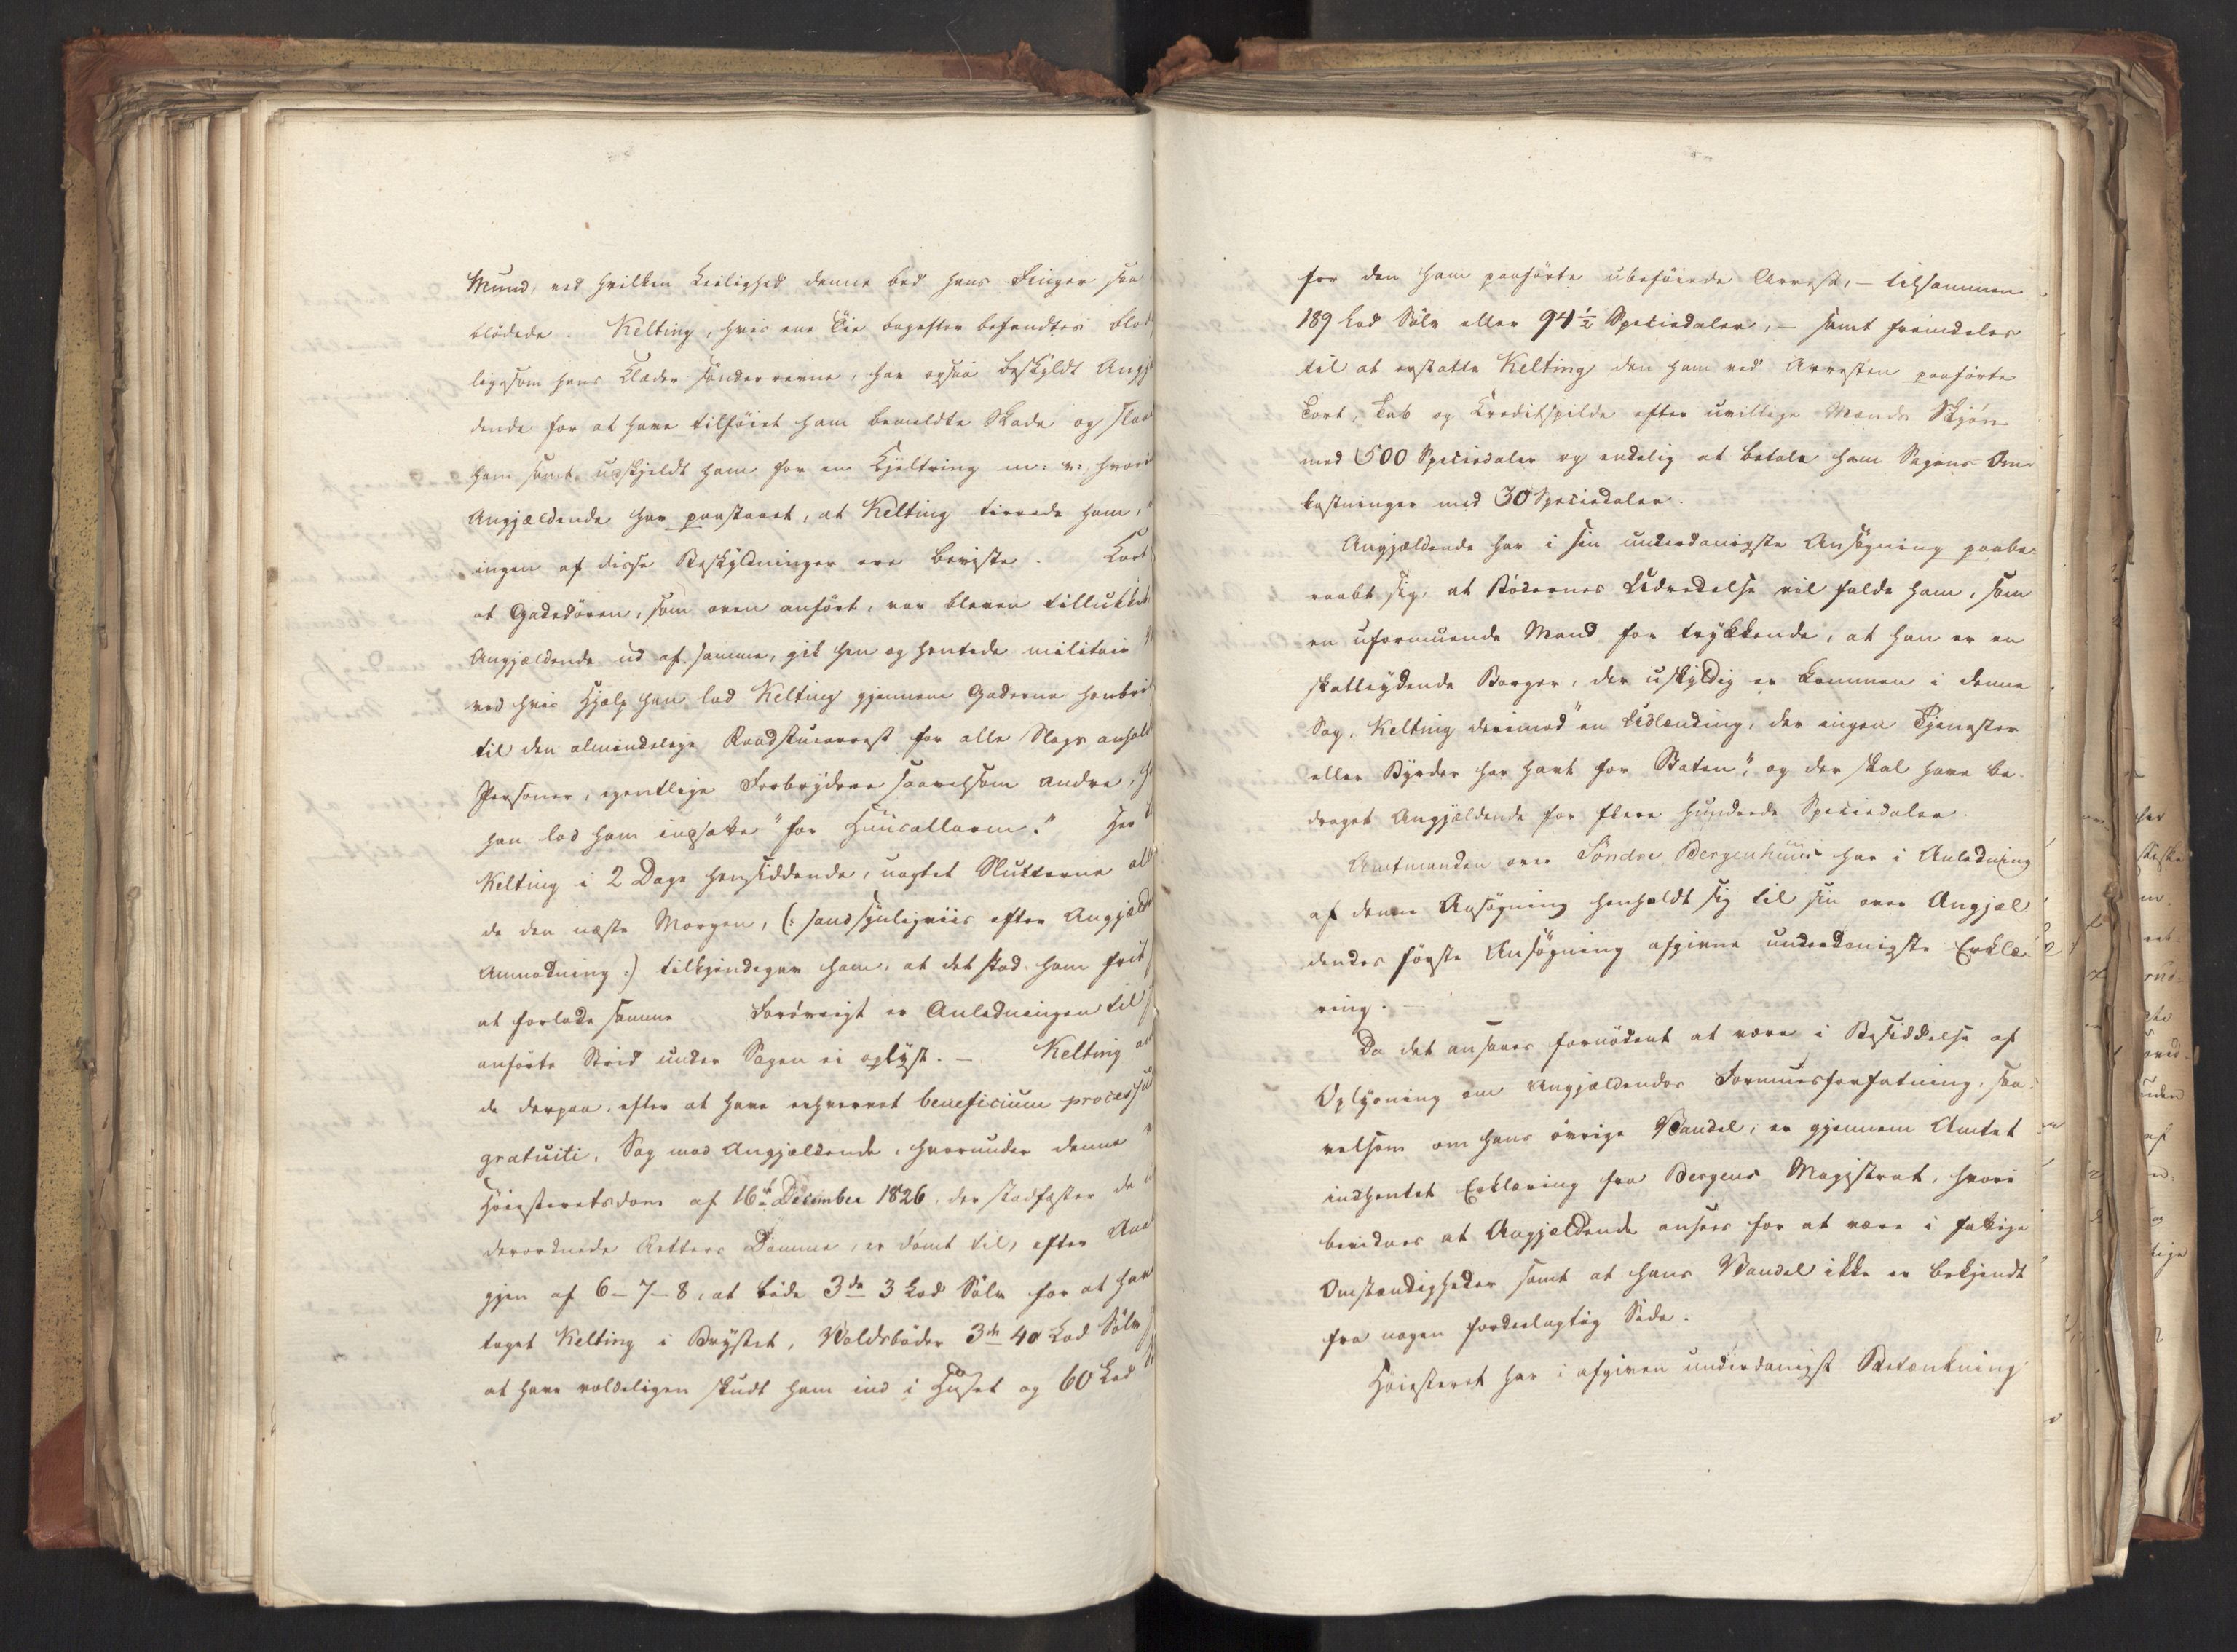 Mund, ved hvilken Leilighed denne bed hans Finger saa
blödede. Kelting, hvis ene Öie bagefter befandtes blod
ligesom hans Klæder sönderrevne, har ogsaa beskyldt Angj
dende for at have tilföiet ham bemeldte Skade og slaa
ham samt udskjeldt ham for en Kjeltring m: v: hvori
Angjældende har paastaaet, at Kelting tirrede ham,
ingen af disse Beskyldninger ere beviste. Kort
at Gadedören, som oven anfört, var bleven tillukket
Angjældende ud af samme, gik hen og hentede militair
ved hvis Hjælp han lod Kelting gjennem Gaderne henbri
til den almindelige Raadstuearrest for alle Slags anhold
Personer, egentlige Forbrydere saavelsom andre,
han lod ham indsætte "for Huusallarm." Her
Kelting i 2 Dage hensiddende, uagtet Slutterne all
de den næste Morgen, (: sandsynligviis efter Angjæld
Anmodning :) tilkjendegav ham, at det stod ham frit
at forlade samme. Forövrigt er Anledningen til
anförte Strid under Sagen ei oplyst. – Kelting an
de derpaa, efter at have erhvervet beneficium processus
gratuiti, Sag mod Angjældende, hvorunder denne
Höiesteretsdom af 16de December 1826, der stadfæster de
derordnede Retters Domme, er dömt til, efter
gjen af 6–7–8, at böde 3de 3 Lod Sölv for at have
taget Kelting i Brystet, Voldsböder 3de 40 Lod Sölv
at have voldeligen skudt ham ind i Huset og 60 Lod
for den ham paaförte ubeföiede Arrest, – tilsammen
189 Lod Sölv eller 94½ Speciedaler, – samt fremdeles
til at erstatte Kelting den ham ved Arresten paaförte
Tort, Tab og Kreditspilde efter uvillige Mænds Skjön
med 500 Speciedaler og endelig at betale ham Sagens Om-
kostninger med 30 Speciedaler.
Angjældende har i sin underdanigste Ansögning paabe-
raabt sig, at Bödernes Udredelse vil falde ham, som
en uformuende Mand for trykkende, at han er en
skatteydende Borger, der uskyldig er kommen i denne
Sag, Kelting derimod "en Udlænding, der ingen Tjenester
eller Byrder har havt for Staten", og der skal have be-
draget Angjældende for flere hundrede Speciedaler.
Amtmanden over Söndre Bergenhuus har i Anledning
af denne Ansögning henholdt sig til sin over Angjæl-
dendes förste Ansögning afgivne underdanigste Erklæ-
ring. –
Da det ansaaes fornödent at være i Besiddelse af
Oplysning om Angjældendes Formuesforfatning, saa-
velsom om hans övrige Vandel, er gjennem Amtet
indhentet Erklæring fra Bergens Magistrat, hvori
bevidnes at Angjældende ansees for at være i fattige
Omstændigheder samt at hans Vandel ikke er bekjendt
fra nogen fordeelagtig Side.
Höiesteret har i afgiven underdanigst Betænkning